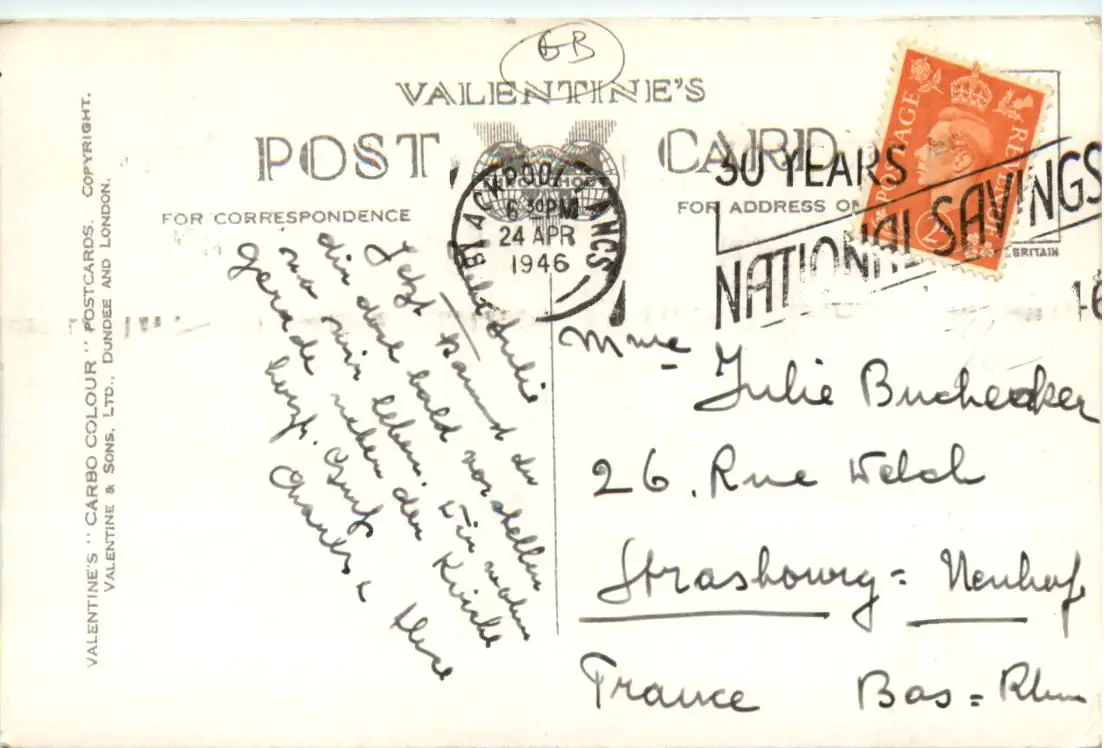 GB
VALENTINE'S
POST CARD
FOR CORRESPONDENCE
FOR ADDRESS ON
BRITAIN
POSTAGE REVENUE
2
BLACKPOOL LANCS
6 30 PM
24 APR
1946
30 YEARS
NATIONAL SAVINGS
46
VALENTINE'S "CARBO COLOUR" POSTCARDS. COPYRIGHT.
VALENTINE & SONS, LTD., DUNDEE AND LONDON.
Julie
Jetzt kannst du
dir dort bald vorstellen
wo wir leben. Wir wohnen
gerade neben der Kirche
herzl.
Charles &
Mme Julie Buchecker
26. Rue Welch
Strasbourg = Neuhof
France Bas = Rhin